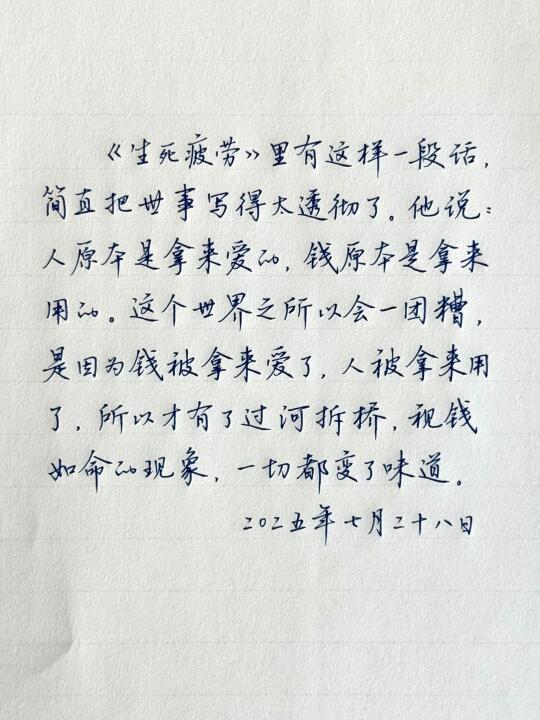 《生死疲劳》里有这样一段话，
简直把世事写得太透彻了。他说：
人原本是拿来爱的，钱原本是拿来
用的。这个世界之所以会一团糟，
是因为钱被拿来爱了，人被拿来用
了，所以才有了过河拆桥，视钱
如命的现象，一切都变了味道。
二〇二五年七月二十八日